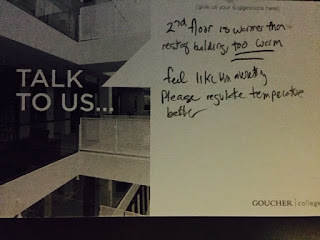 TALK
TO US...
(give us your suggestions here)
2nd floor is warmer than
rest of building, too warm
feel like I'm
Please regulate temperature
better
GOUCHER | college